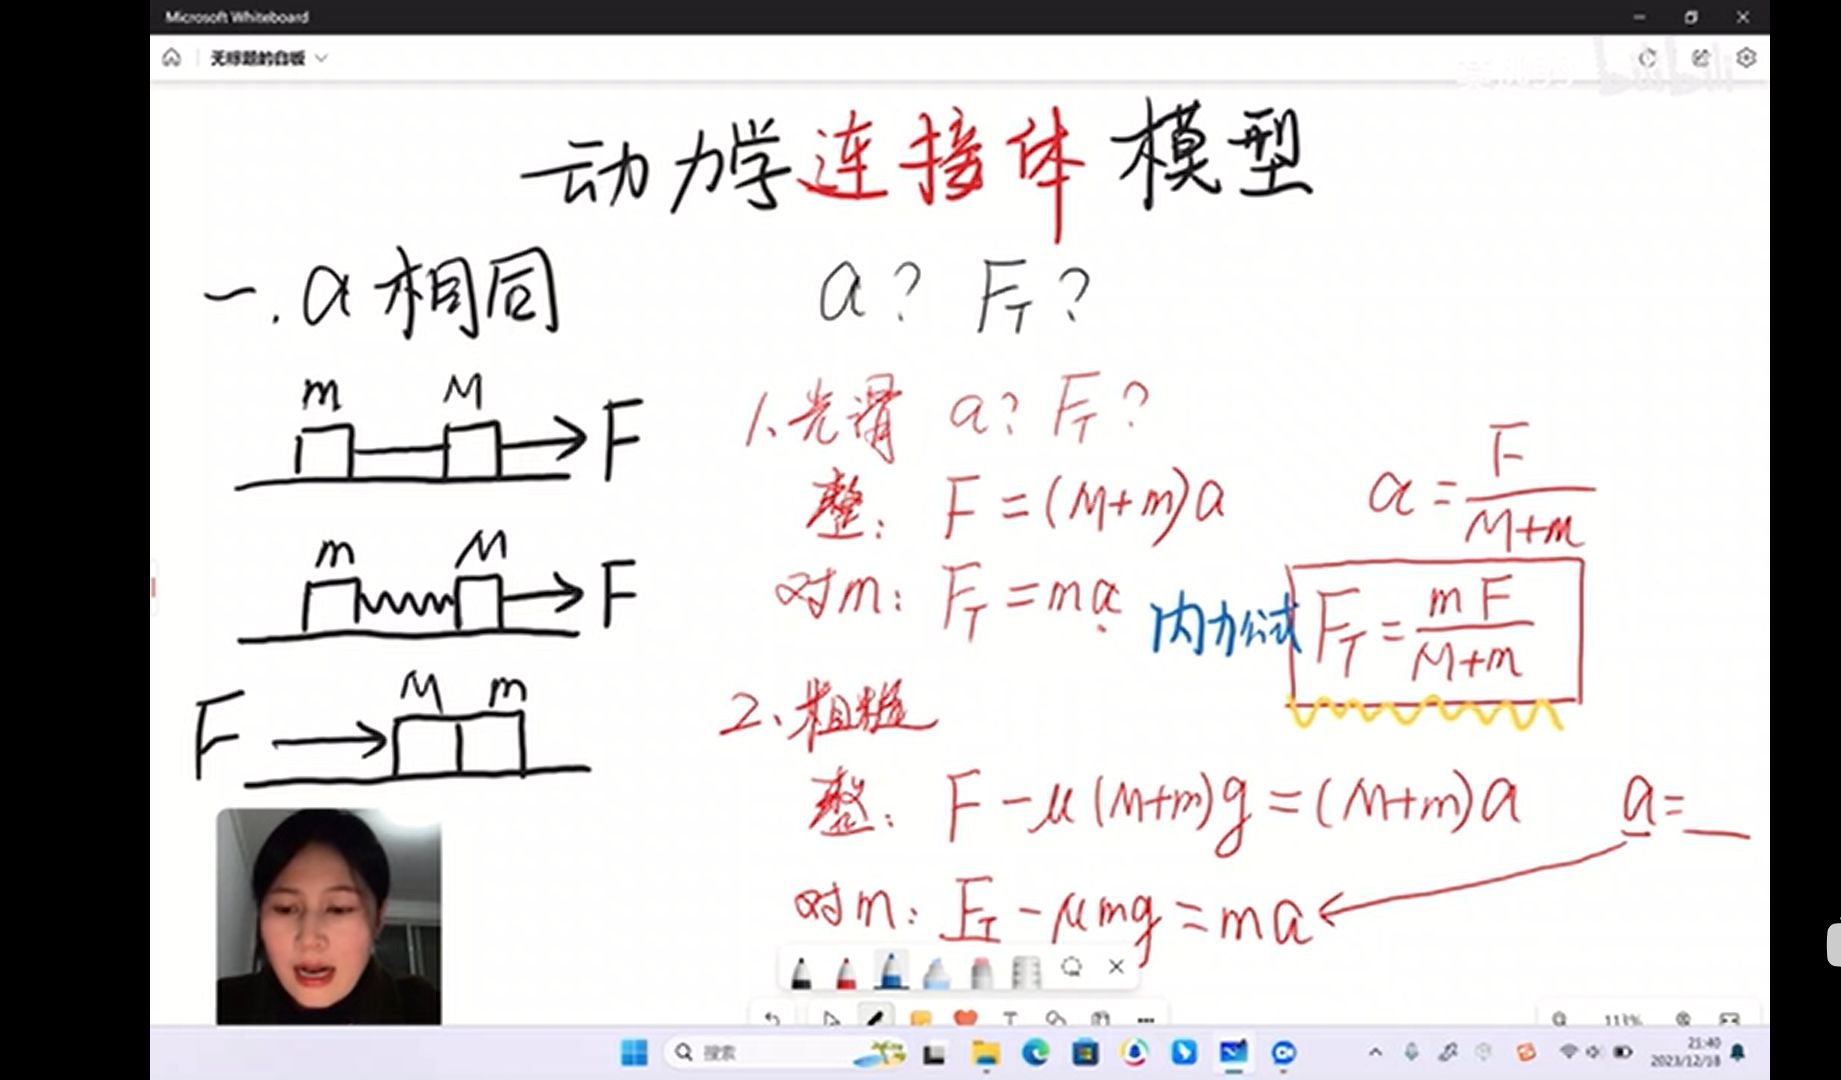 Microsoft Whiteboard
无标题的白板
bilibili
动力学连接体模型
一. a相同
a? F_T?
m M
F
m M
F
F
M m
1、光滑 a? F_T?
整: F=(M+m)a
a=F/(M+m)
对m: F_T=ma
内力公式 F_T=mF/(M+m)
2、粗糙
整: F-μ(M+m)g=(M+m)a
a=__
对m: F_T-μmg=ma
113%
搜索
21:40
2023/12/18